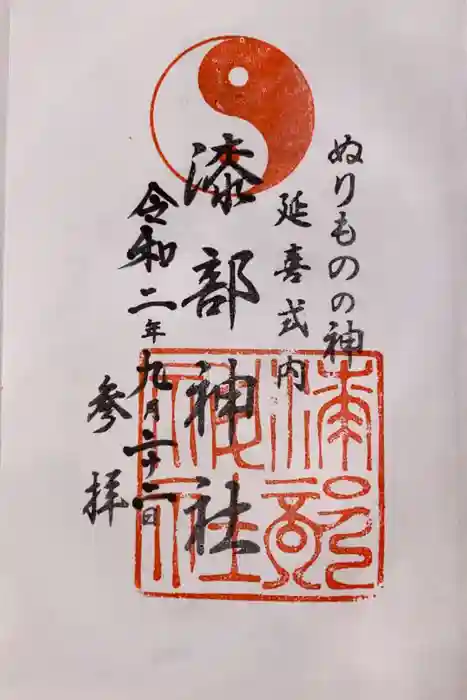 ぬりものの神
延喜式内
漆部神社
令和二年九月二十二日
参拝
漆部神社